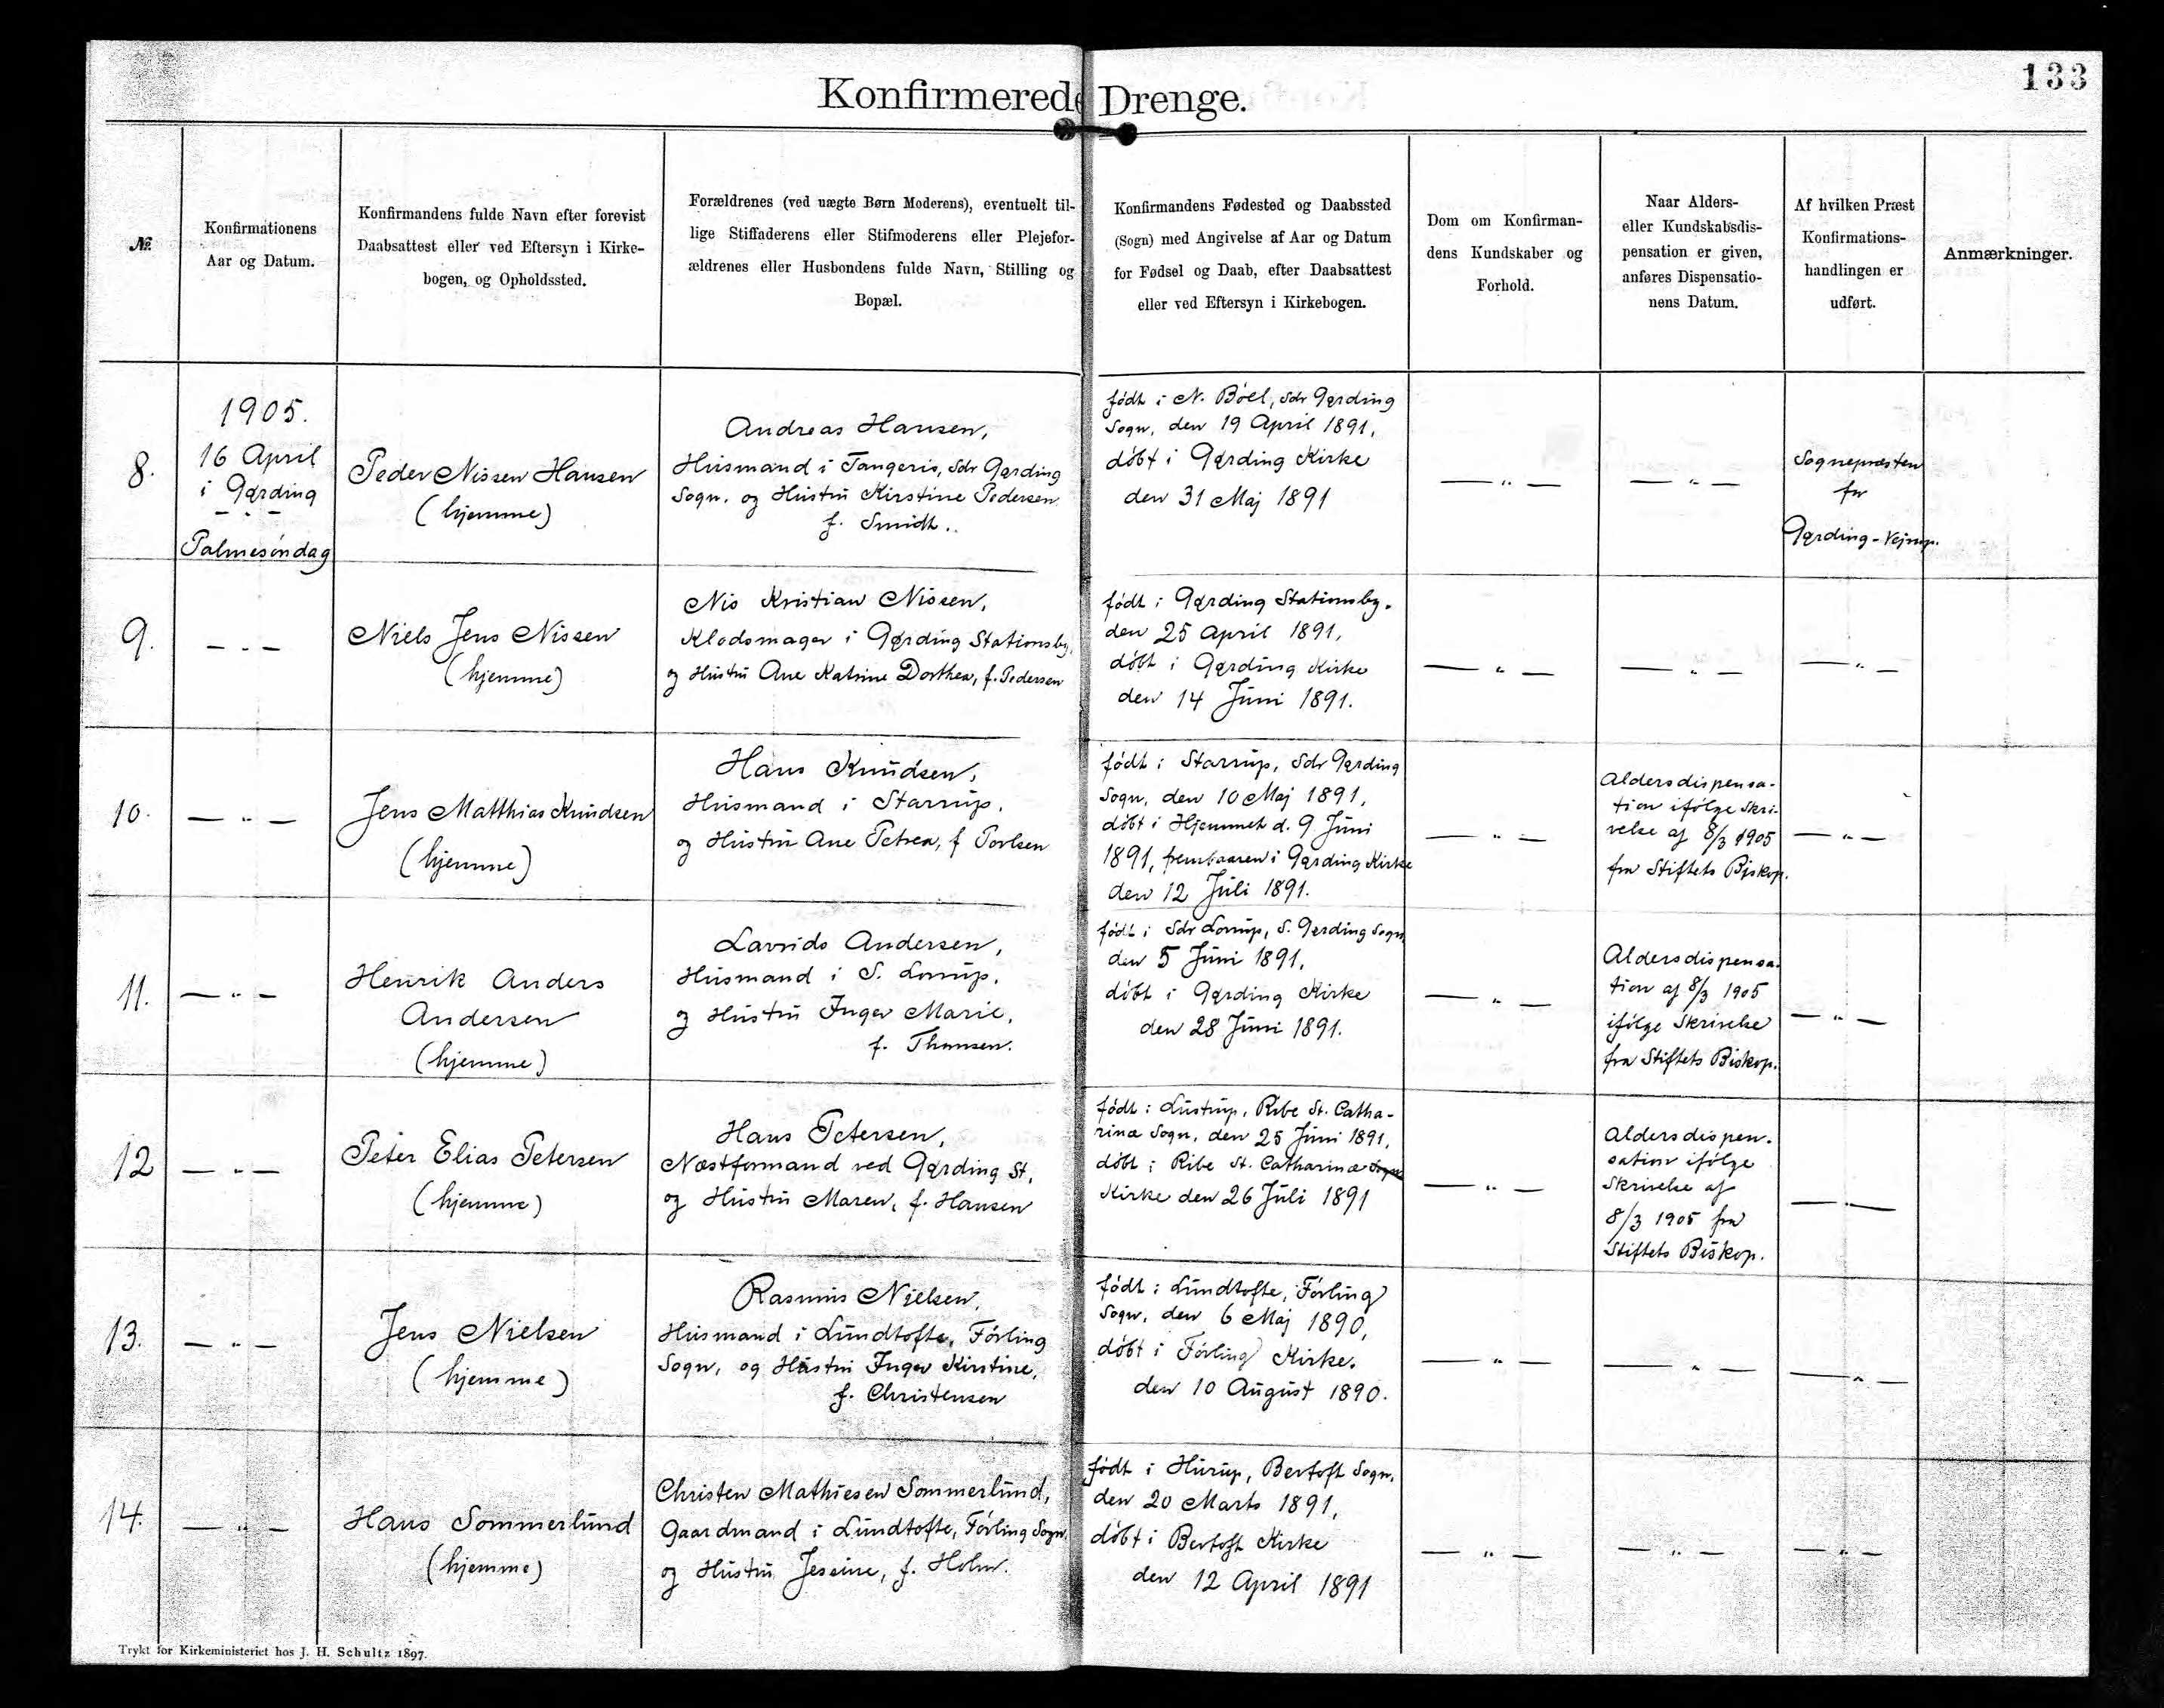 133
Konfirmerede Drenge.
№
Konfirmationens
Aar og Datum.
Konfirmandens fulde Navn efter forevist
Daabsattest eller ved Eftersyn i Kirke-
bogen, og Opholdssted.
Forældrenes (ved uægte Børn Moderens), eventuelt til-
lige Stiffaderens eller Stifmoderens eller Plejefor-
ældrenes eller Husbondens fulde Navn, Stilling og
Bopæl.
Konfirmandens Fødested og Daabssted
(Sogn) med Angivelse af Aar og Datum
for Fødsel og Daab, efter Daabsattest
eller ved Eftersyn i Kirkebogen.
Dom om Konfirman-
dens Kundskaber og
Forhold.
Naar Alders-
eller Kundskabsdis-
pensation er given,
anføres Dispensatio-
nens Datum.
Af hvilken Præst
Konfirmations-
handlingen er
udført.
Anmærkninger.
8.
1905.
16 April
i Gørding
— " —
Palmesøndag
Peder Nissen Hansen
(hjemme)
Andreas Hansen,
Husmand i Tangeris, Sdr Gørding
Sogn, og Hustru Kirstine Pedersen
f. Smidt..
født i N. Böel, Sdr Gørding
Sogn, den 19 April 1891,
döbt i Gørding Kirke
den 31 Maj 1891
— " —
— " —
Sognepræsten
for
Gørding-Vejrup.
9.
— " —
Niels Jens Nissen
(hjemme)
Nis Kristian Nissen,
Klodsmager i Gørding Stationsby,
og Hustru Ane Katrine Dorthea, f. Pedersen
födt i Gørding Stationsby.
den 25 April 1891,
döbt i Gørding Kirke
den 14 Juni 1891.
— " —
— " —
— " —
10.
— " —
Jens Matthias Knudsen
(hjemme)
Hans Knudsen,
Husmand i Starrup,
og Hustru Ane Petrea, f Povlsen
födt i Starrup, Sdr Gørding
Sogn, den 10 Maj 1891,
döbt i Hjemmet d. 9 Juni
1891, frembaaren i Gørding Kirke
den 12 Juli 1891.
— " —
Aldersdispensa-
tion ifölge Skri-
velse af 8/3 1905
fra Stiftets Biskop.
— " —
11.
— " —
Henrik Anders
Andersen
(hjemme)
Lavrids Andersen,
Husmand i S. Lourup,
og Hustru Inger Marie,
f. Thomsen.
födt i Sdr Lourup, S. Gørding Sogn
den 5 Juni 1891,
döbt i Gørding Kirke
den 28 Juni 1891.
— " —
Aldersdispensa-
tion af 8/3 1905
ifölge Skrivelse
fra Stiftets Biskop.
— " —
12
— " —
Peter Elias Petersen
(hjemme)
Hans Petersen,
Næstformand ved Gørding St.
og Hustru Maren, f. Hansen
födt i Lustrup, Ribe St. Catha-
rinæ Sogn, den 25 Juni 1891,
döbt i Ribe St. Catharinæ Sogns
Kirke den 26 Juli 1891
— " —
Aldersdispen-
sation ifölge
Skrivelse af
8/3 1905 fra
Stiftets Biskop.
— " —
13.
— " —
Jens Nielsen
(hjemme)
Rasmus Nielsen,
Husmand i Lundtofte, Fövling
Sogn, og Hustru Inger Kirstine,
f. Christensen
födt i Lundtofte, Fövling
Sogn, den 6 Maj 1890,
döbt i Fövling Kirke.
den 10 August 1890.
— " —
— " —
— " —
14.
— " —
Hans Sommerlund
(hjemme)
Christen Mathiesen Sommerlund,
Gaardmand i Lundtofte, Fövling Sogn,
og Hustru Jessine, f. Holm.
födt i Hurup, Bevtoft Sogn,
den 20 Marts 1891,
döbt i Bevtoft Kirke
den 12 April 1891
— " —
— " —
— " —
Trykt for Kirkeministeriet hos J. H. Schultz 1897.